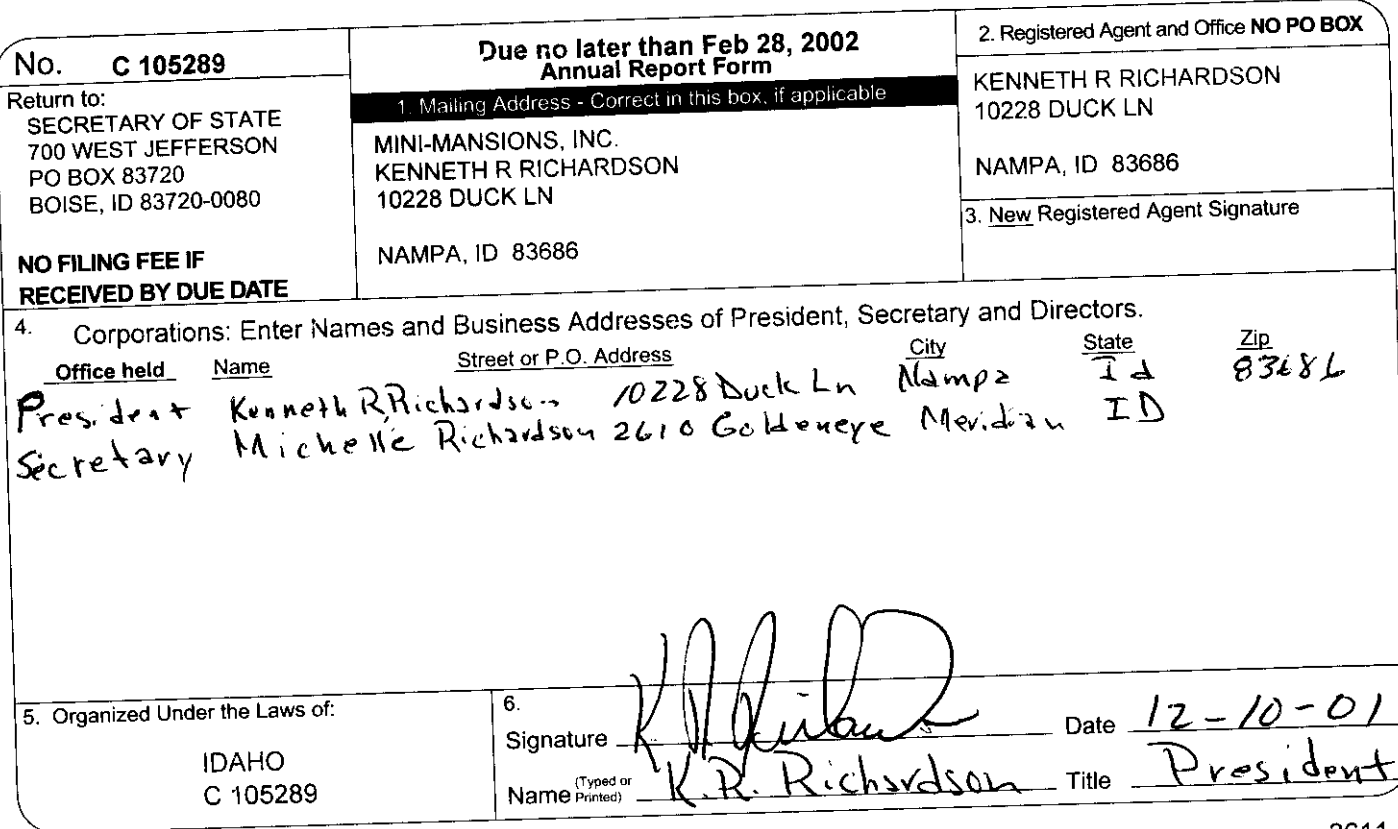 No. C 105289
Return to:
SECRETARY OF STATE
700 WEST JEFFERSON
PO BOX 83720
BOISE, ID 83720-0080
NO FILING FEE IF
RECEIVED BY DUE DATE
Due no later than Feb 28, 2002
Annual Report Form
1. Mailing Address - Correct in this box, if applicable
MINI-MANSIONS, INC.
KENNETH R RICHARDSON
10228 DUCK LN
NAMPA, ID 83686
2. Registered Agent and Office NO PO BOX
KENNETH R RICHARDSON
10228 DUCK LN
NAMPA, ID 83686
3. New Registered Agent Signature
4. Corporations: Enter Names and Business Addresses of President, Secretary and Directors.
Office held Name Street or P.O. Address City State Zip
President Kenneth R Richardson 10228 Duck Ln Nampa Id 83686
Secretary Michelle Richardson 2610 Goldeneye Meridian ID
5. Organized Under the Laws of:
IDAHO
C 105289
6.
Signature Date 12-10-01
Name (Typed or Printed) K.R. Richardson Title President